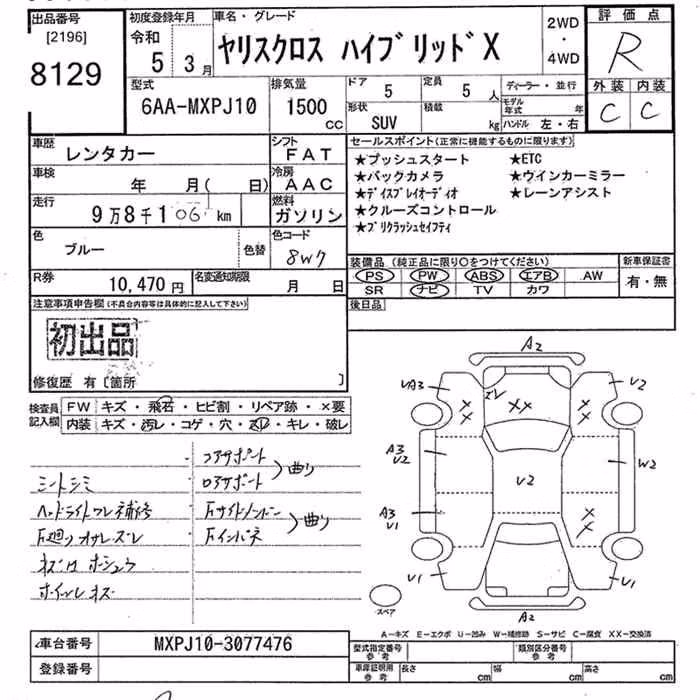 出品番号
[2196]
8129
初度登録年月
令和
5 3月
車名・グレード
ヤリスクロス ハイブリッドX
2WD
・
4WD
評価点
R
外装 内装
C C
型式
6AA-MXPJ10
排気量
1500
cc
ドア
5
定員
5 人
形状
SUV
積載
kg
ディーラー・並行
モデル年式 年
ハンドル 左・右
車歴
レンタカー
シフト
FAT
車検
年 月( 日)
冷房
AAC
走行
9万8千106km
燃料
ガソリン
色
ブルー
色替
色コード
8W7
R券
10,470円
名変通知期限
月 日
セールスポイント(正常に機能するものに限ります)
★プッシュスタート ★ETC
★バックカメラ ★ウインカーミラー
★ディスプレイオーディオ ★レーンアシスト
★クルーズコントロール
★プリクラッシュセイフティ
装備品 (純正品に限り○をつけてください)
新車保証書
PS PW ABS エアB AW
SR ナビ TV カワ
有・無
後日品
注意事項申告欄(不具合内容等は具体的に記入して下さい)
初出品
修復歴 有〔箇所 〕
検査員
記入欄
FW キズ・飛石・ヒビ割・リペア跡・×要
内装 キズ・汚レ・コゲ・穴・スレ・キレ・破レ
コアサポート
シートシミ
ロアサポート
曲り
ヘッドライトワレ補修
Fサイドメンバー
F廻りオサレズレ
Fインパネ
曲り
ホイールキズ
A2
UA3
U2
XX
A3
U2
U2
W2
A3
U1
U1
U1
A2
スペア
A-キズ E-エクボ U-凹み W-補修跡 S-サビ C-腐食 XX-交換済
車台番号
MXPJ10-3077476
登録番号
型式指定番号
参考
類別区分番号
参考
車庫証明用
参考
長さ cm 幅 cm 高さ cm